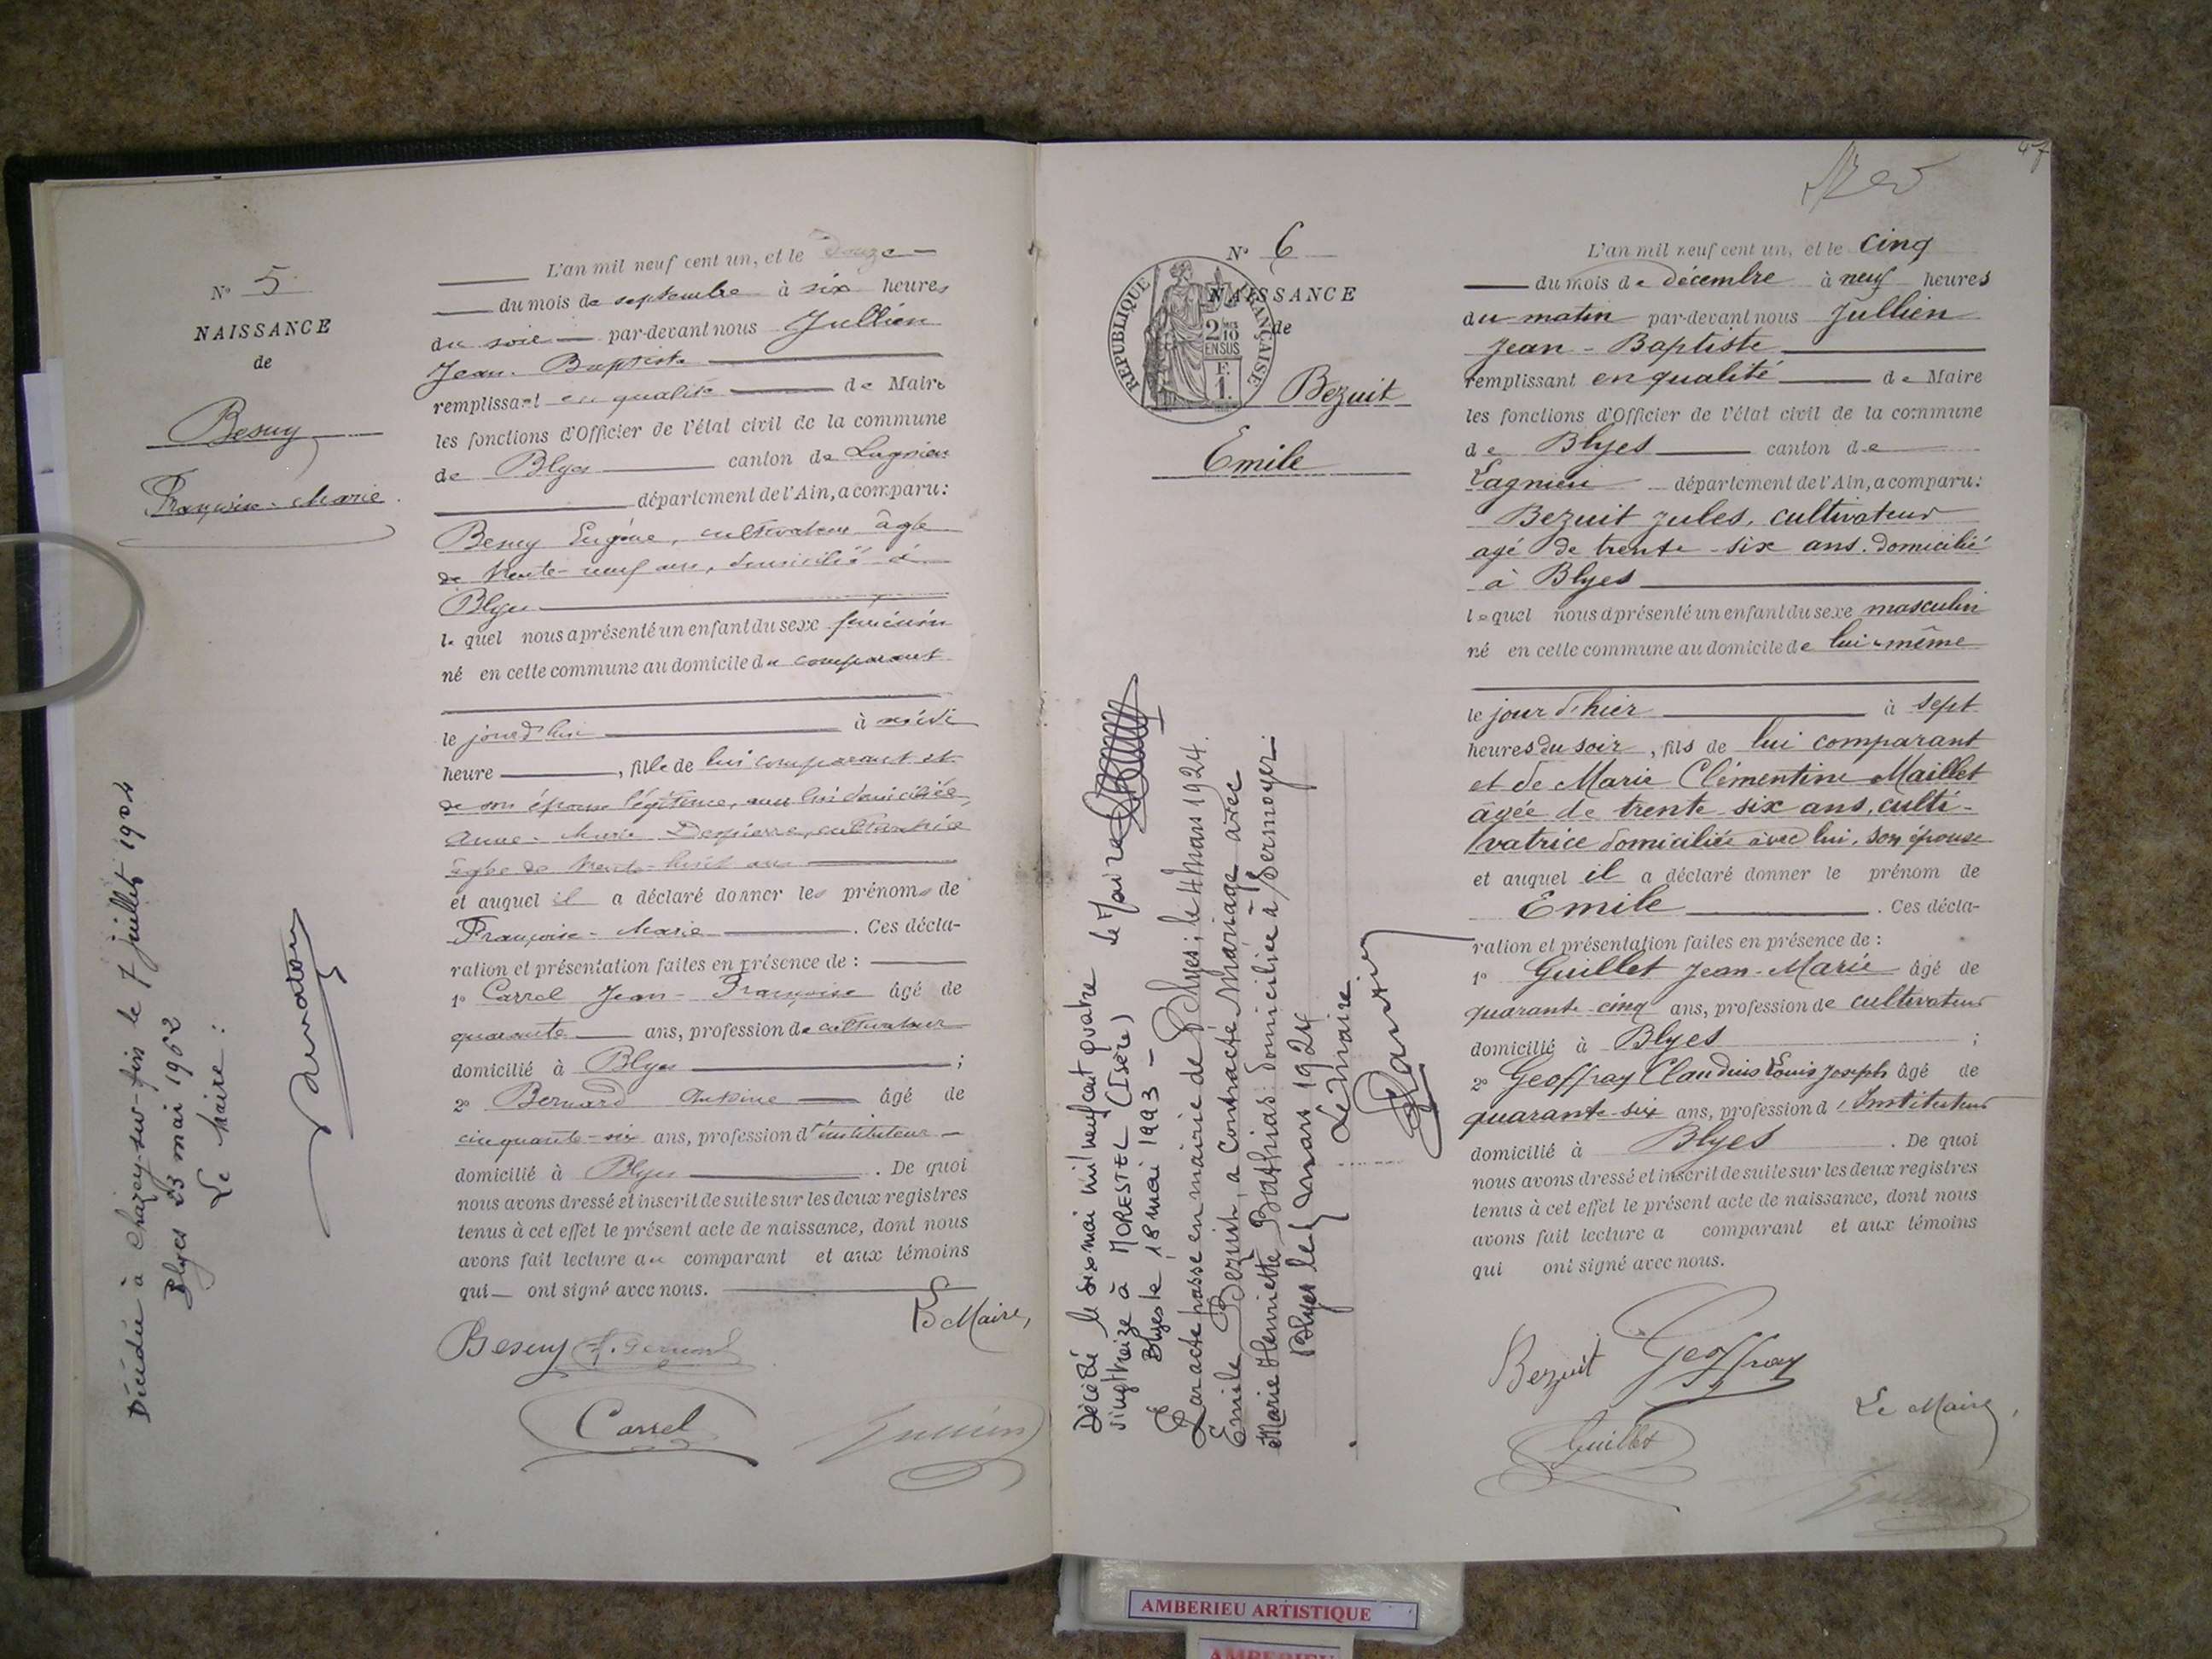 N° 5
NAISSANCE
de
Besuy
Françoise-Marie.
Décédée à Chazey-sur-
le 7 juillet 19
Blyes 23 mai 1962
Le Maire :
L'an mil neuf cent un, et le Douze
du mois de septembre à six heures
du soir par-devant nous Jullien
Jean-Baptiste
remplissant en qualité de Maire
les fonctions d'Officier de l'état civil de la commune
de Blyes canton de Lagnieu
département de l'Ain, a comparu:
Besuy Eugène, cultivateur âgé
de trente-neuf ans, domicilié à
Blyes
lequel nous a présenté un enfant du sexe féminin
né en cette commune au domicile du comparant
le jour d'hui à midi
heure , fille de lui comparant et
de son épouse légitime, avec lui domiciliée,
Anne-Marie Depierre, cultivatrice
âgée de trente-huit ans
et auquel il a déclaré donner les prénoms de
Françoise-Marie . Ces décla-
ration et présentation faites en présence de :
1° Carrel Jean-Françoise âgé de
quarante ans, profession de cultivateur
domicilié à Blyes ;
2° Bernard Antoine âgé de
cinquante-six ans, profession d'instituteur
domicilié à Blyes . De quoi
nous avons dressé et inscrit de suite sur les deux registres
tenus à cet effet le présent acte de naissance, dont nous
avons fait lecture au comparant et aux témoins
qui ont signé avec nous.
Le Maire,
Besuy
Carrel
Jullien
47
N° 6
NAISSANCE
de
REPUBLIQUE FRANÇAISE
2/10
EN SUS
F.
1.
Bezuit
Emile
Décédé le six mai mil neuf cent quatre
vingt treize à MORESTEL (Isère)
Blyes le 18 mai 1993 - Le Maire
Par acte passé en mairie de Blyes, le 4 Mars 1924.
Emile Bezuit, a contracté mariage avec
Marie Henriette Bathias domiciliée à Sermoyer.
Blyes le mars 1924
Le Maire
L'an mil neuf cent un, et le cinq
du mois de décembre à neuf heures
du matin par-devant nous Jullien
Jean-Baptiste
remplissant en qualité de Maire
les fonctions d'Officier de l'état civil de la commune
de Blyes canton de
Lagnieu département de l'Ain, a comparu:
Bezuit Jules, cultivateur
agé de trente-six ans. domicilié
à Blyes
lequel nous a présenté un enfant du sexe masculin
né en cette commune au domicile de lui-même
le jour d'hier à sept
heures du soir, fils de lui comparant
et de Marie Clémentine Maillet
âgée de trente six ans, culti-
vatrice domiciliée avec lui, son épouse
et auquel il a déclaré donner le prénom de
Emile . Ces décla-
ration et présentation faites en présence de :
1° Guillet Jean-Marie âgé de
quarante-cinq ans, profession de cultivateur
domicilié à Blyes ;
2° Geoffray Claudius Louis Joseph âgé de
quarante-six ans, profession d'Instituteur
domicilié à Blyes . De quoi
nous avons dressé et inscrit de suite sur les deux registres
tenus à cet effet le présent acte de naissance, dont nous
avons fait lecture a comparant et aux témoins
qui ont signé avec nous.
Bezuit Geoffray
Le Maire,
Guillet
Jullien
AMBERIEU ARTISTIQUE
AMBERIEU